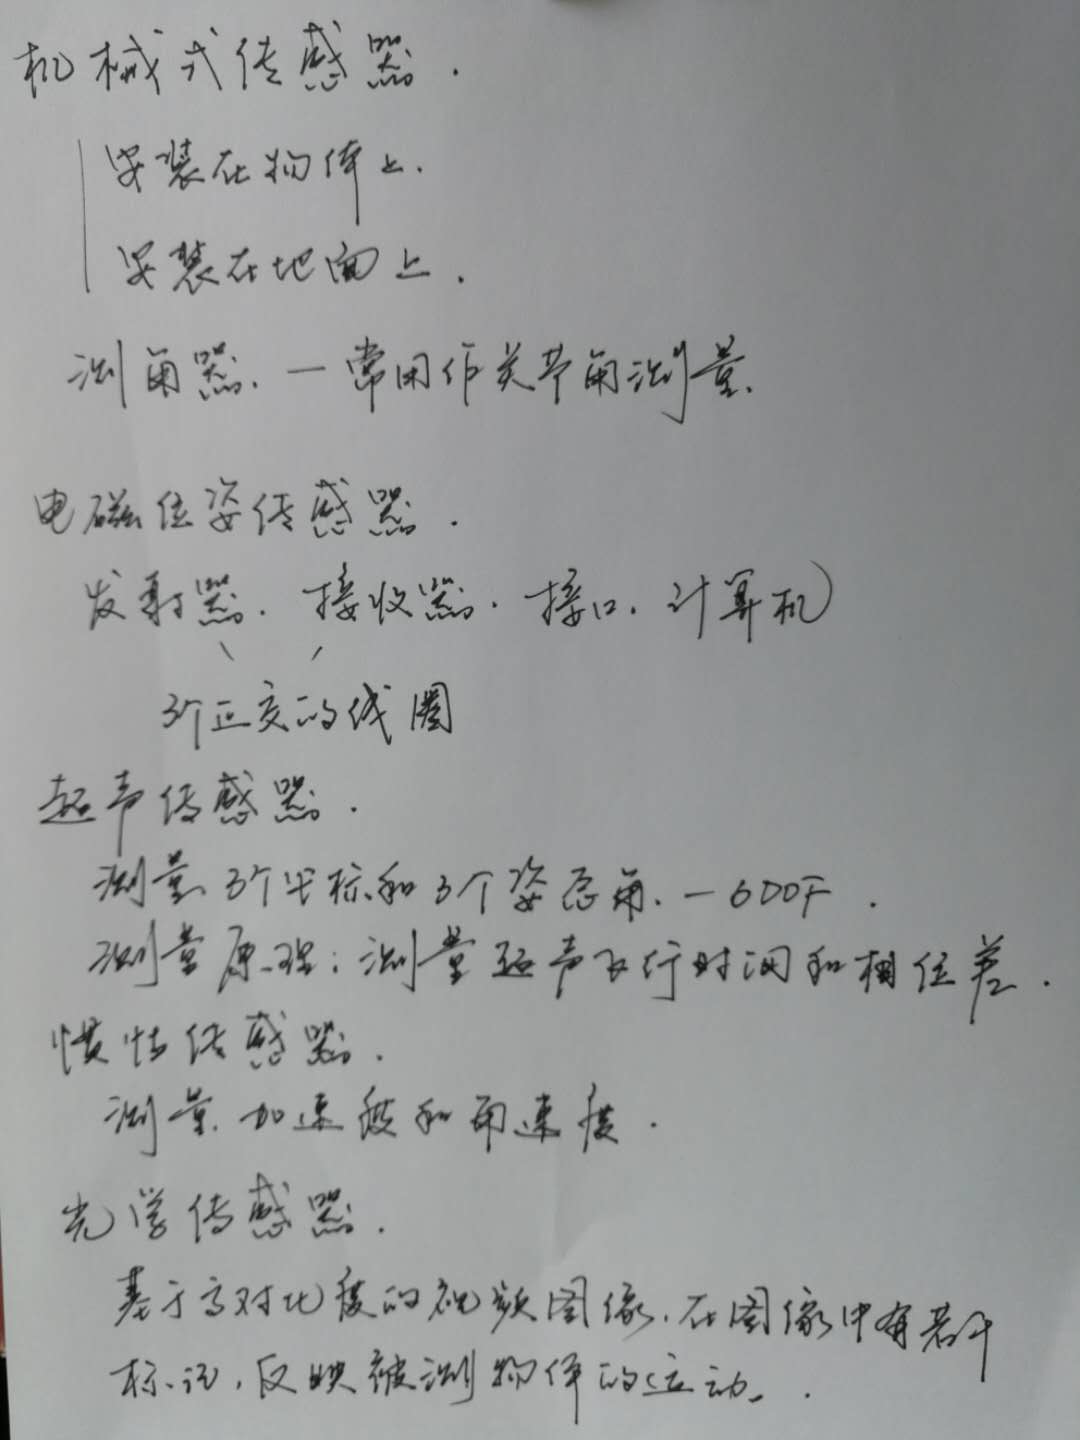 机械式传感器.
安装在物体上.
安装在地面上.
测角器.—常用作关节角测量.
电磁位姿传感器.
发射器.接收器.接口.计算机
3个正交的线圈
超声传感器.
测量3个坐标和3个姿态角.—6DOF.
测量原理:测量超声飞行时间和相位差.
惯性传感器.
测量加速度和角速度.
光学传感器.
基于高对比度的视频图像.在图像中有若干
标记,反映被测物体的运动.